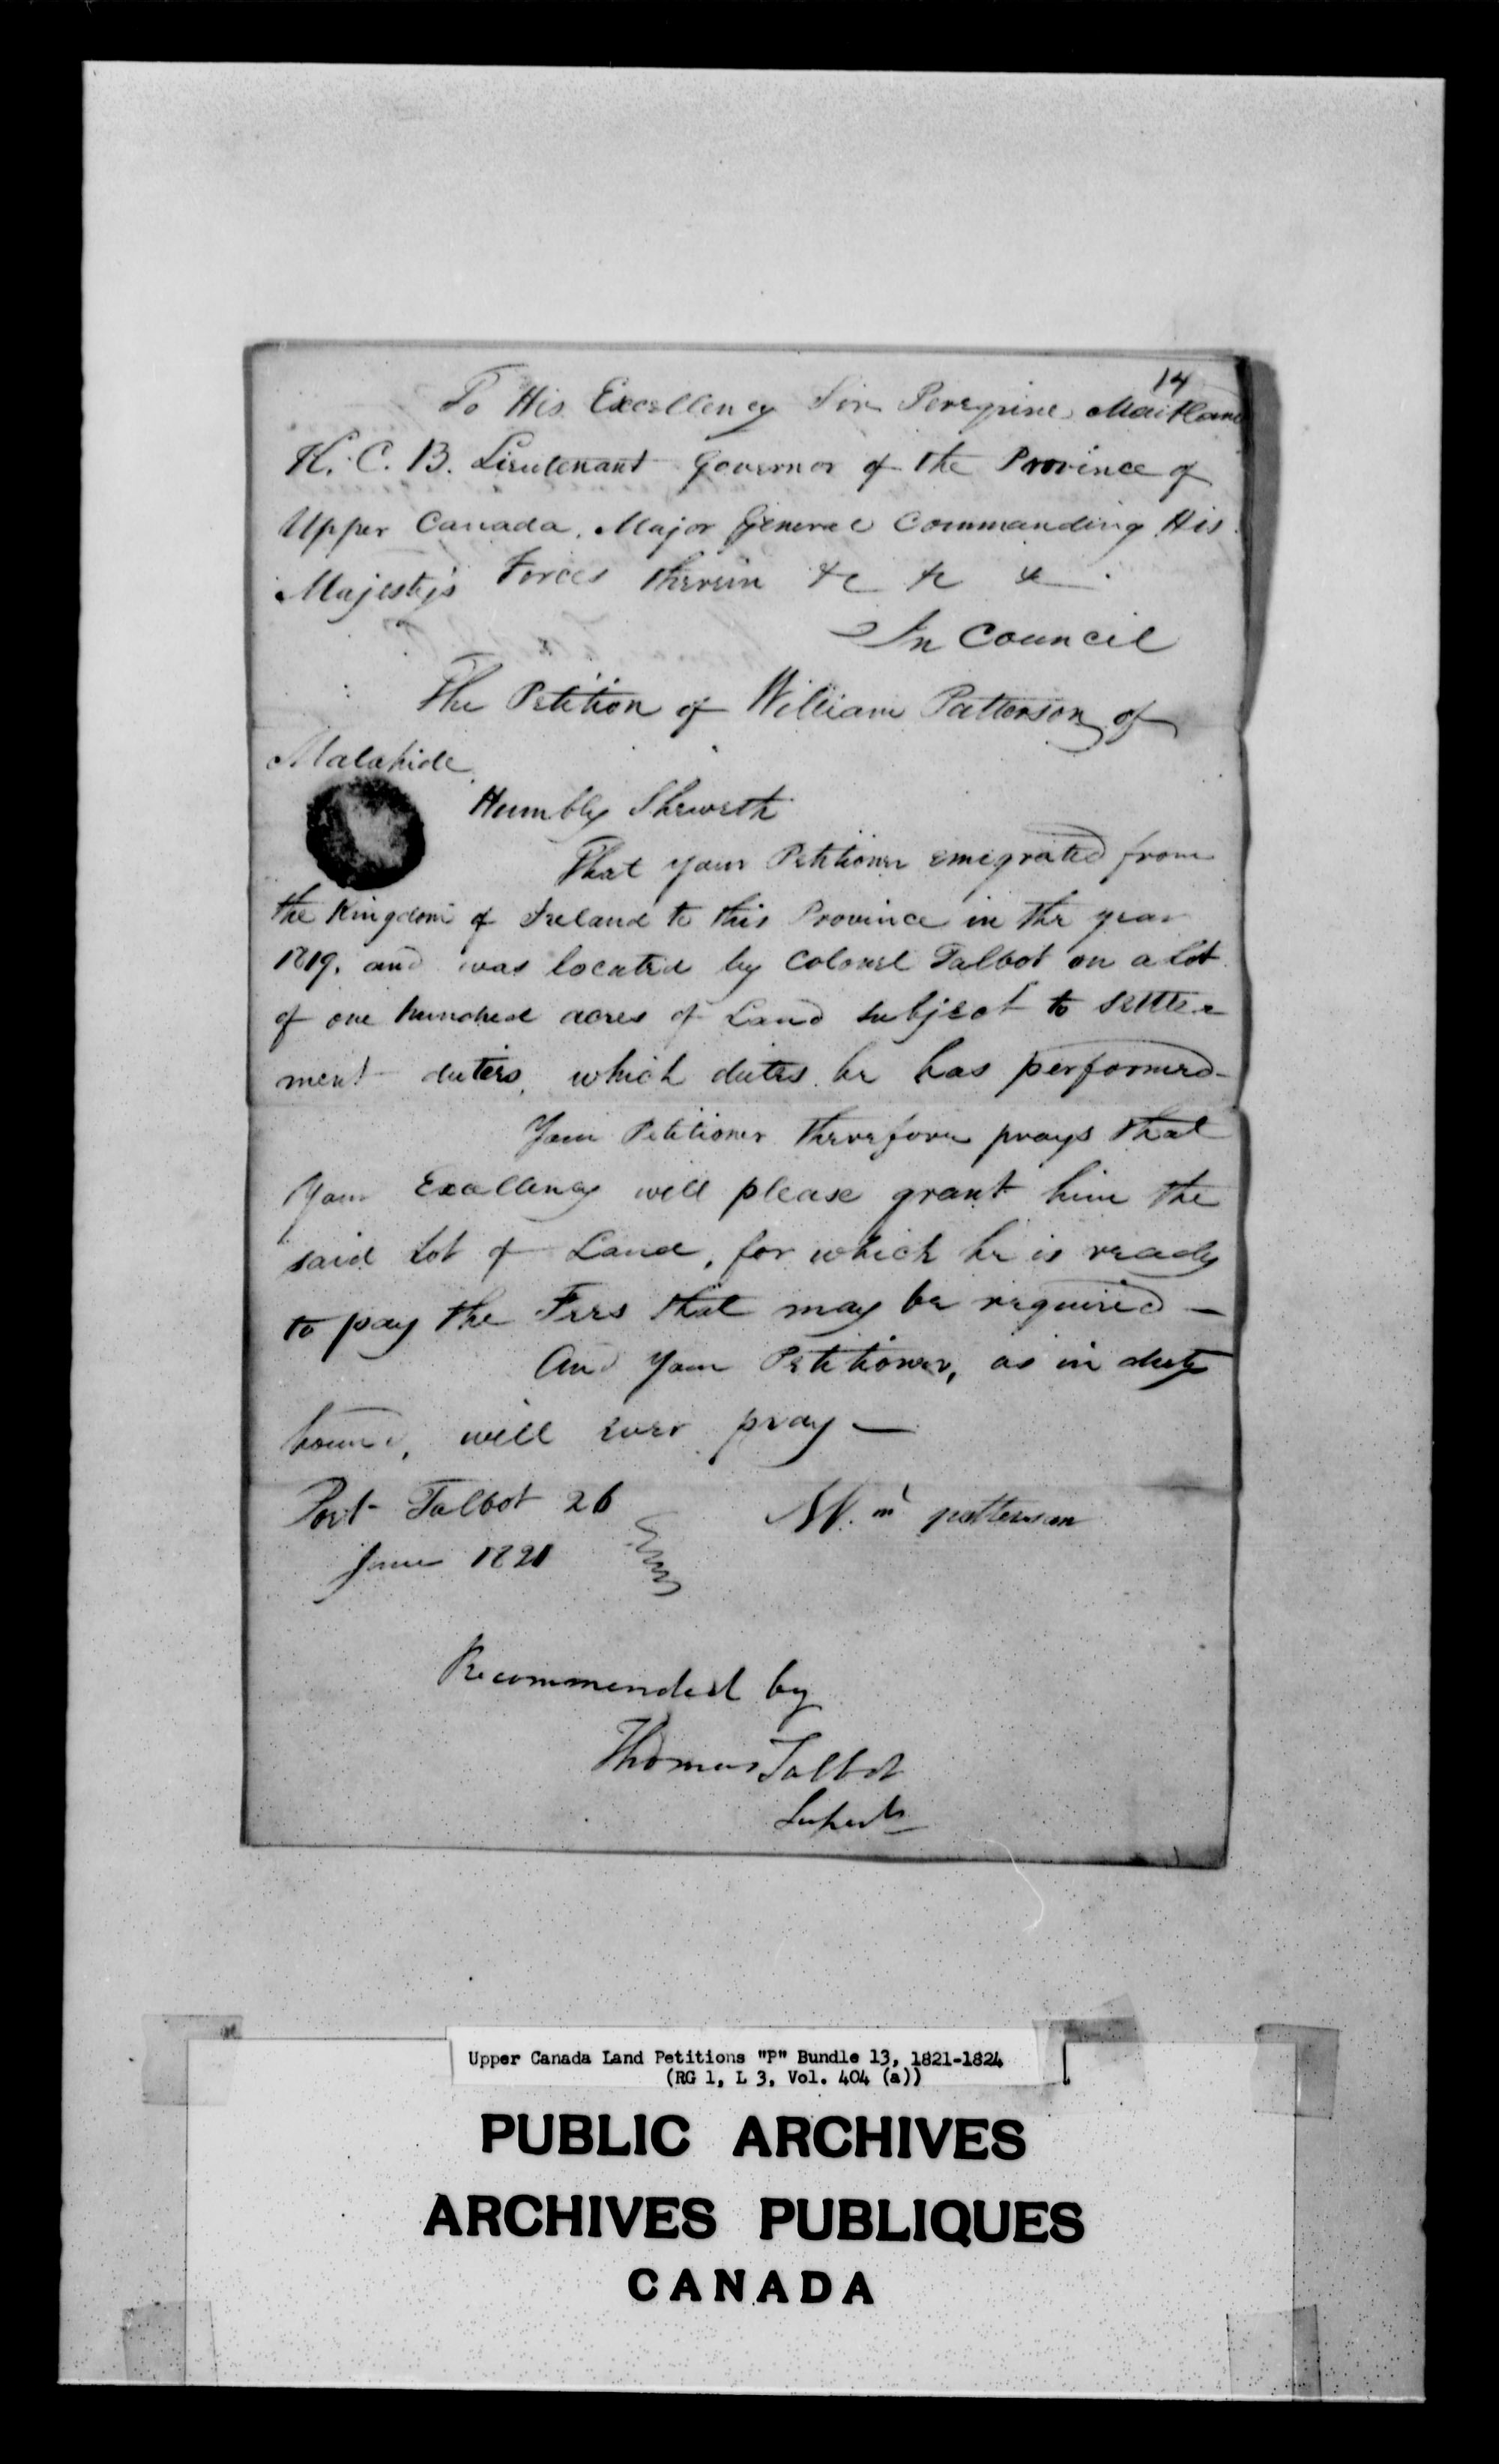 14
To His Excellency Sir Peregrine Maitland
K. C. B. Lieutenant Governor of the Province of
Upper Canada, Major General Commanding His
Majesty's Forces therein &c &c &c
In Council
The Petition of William Patterson of
Malahide
Humbly Sheweth
That your Petitioner emigrated from
the Kingdom of Ireland to this Province in the year
1819, and was located by Colonel Talbot on a lot
of one hundred acres of Land subject to settle-
ment duties, which duties he has performed-
Your Petitioner therefore prays that
Your Excellency will please grant him the
said Lot of Land, for which he is ready
to pay the Fees that may be required —
And Your Petitioner, as in duty
bound, will ever pray —
Port Talbot 26
June 1821
Wm patterson
Recommended by
Thomas Talbot
Upper Canada Land Petitions "P" Bundle 13, 1821-1824
(RG 1, L 3, Vol. 404 (a))
PUBLIC ARCHIVES
ARCHIVES PUBLIQUES
CANADA